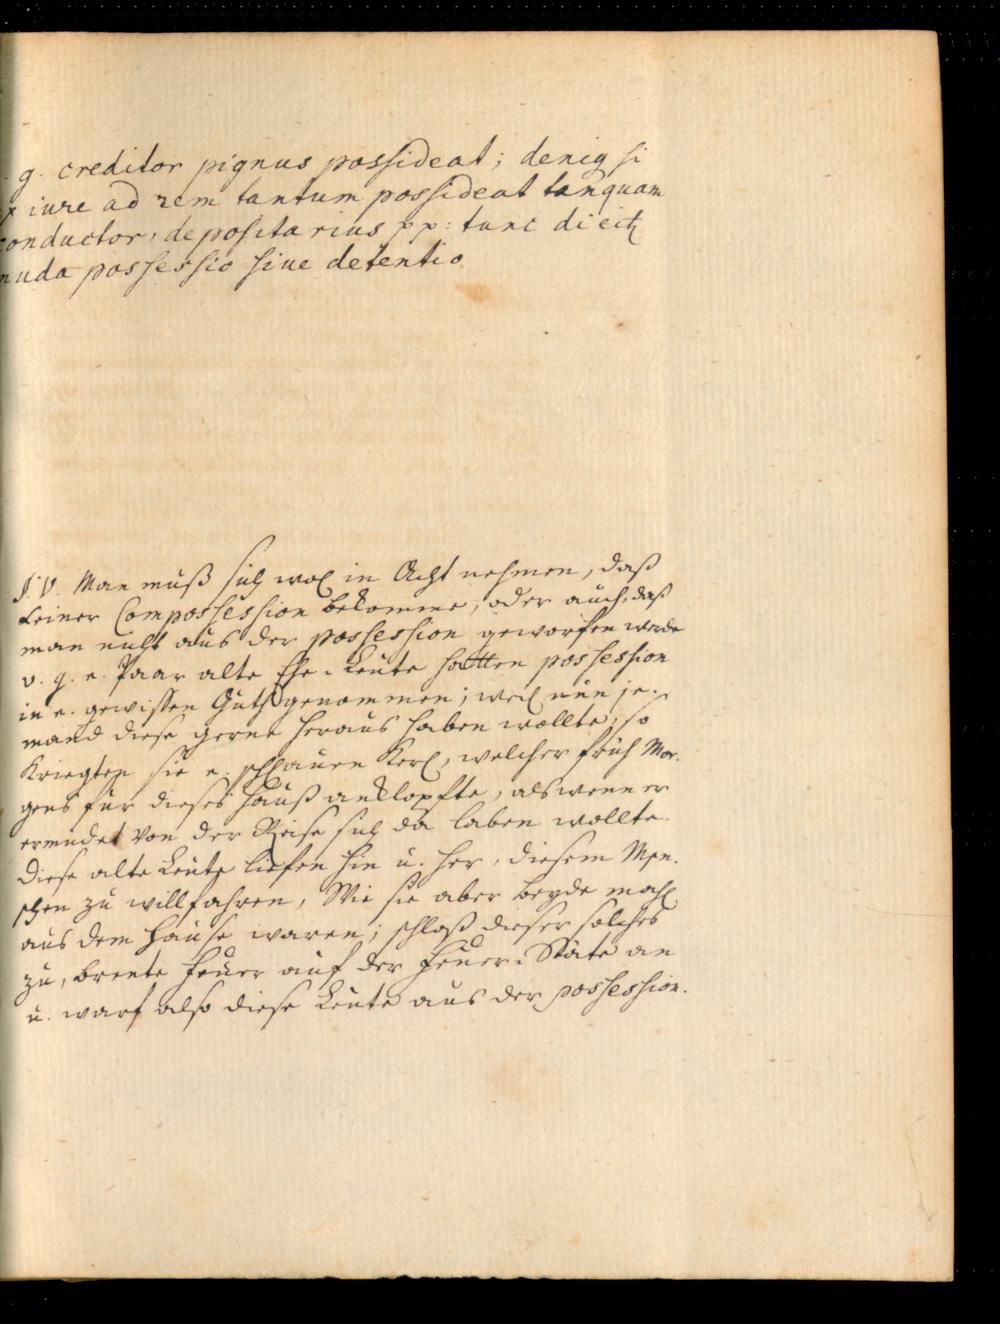 g. creditor pignus possideat; deniq si
x iure ad rem tantum possideat tanquam
conductor, depositarius pp: tunc dicitz
nuda possessio siue detentio
§. V. Man muß sich wol in Acht nehmen, daß
keiner Compossession bekomme, oder auch, daß
man nicht aus der possession geworfen werde
v. g. e. Paar alte Ehe-Leute hatten possession
in e. gewissen Guth genommen; weil nun je-
mand diese gerne heraus haben wollte, so
kriegten sie e. schlauen Kerl, welcher früh Mor-
gens für dieses Hauß anklopfte, als wenn er
ermüdet von der Reise sich da laben wollte.
Diese alte Leute liefen hin u. her, diesem Men-
schen zu willfahren, Wie sie aber beyde mahl
aus dem Hause waren; schloß dieser solches
zu, brente Feuer auf der Feuer-Stäte an
u. warf also diese Leute aus der possession.